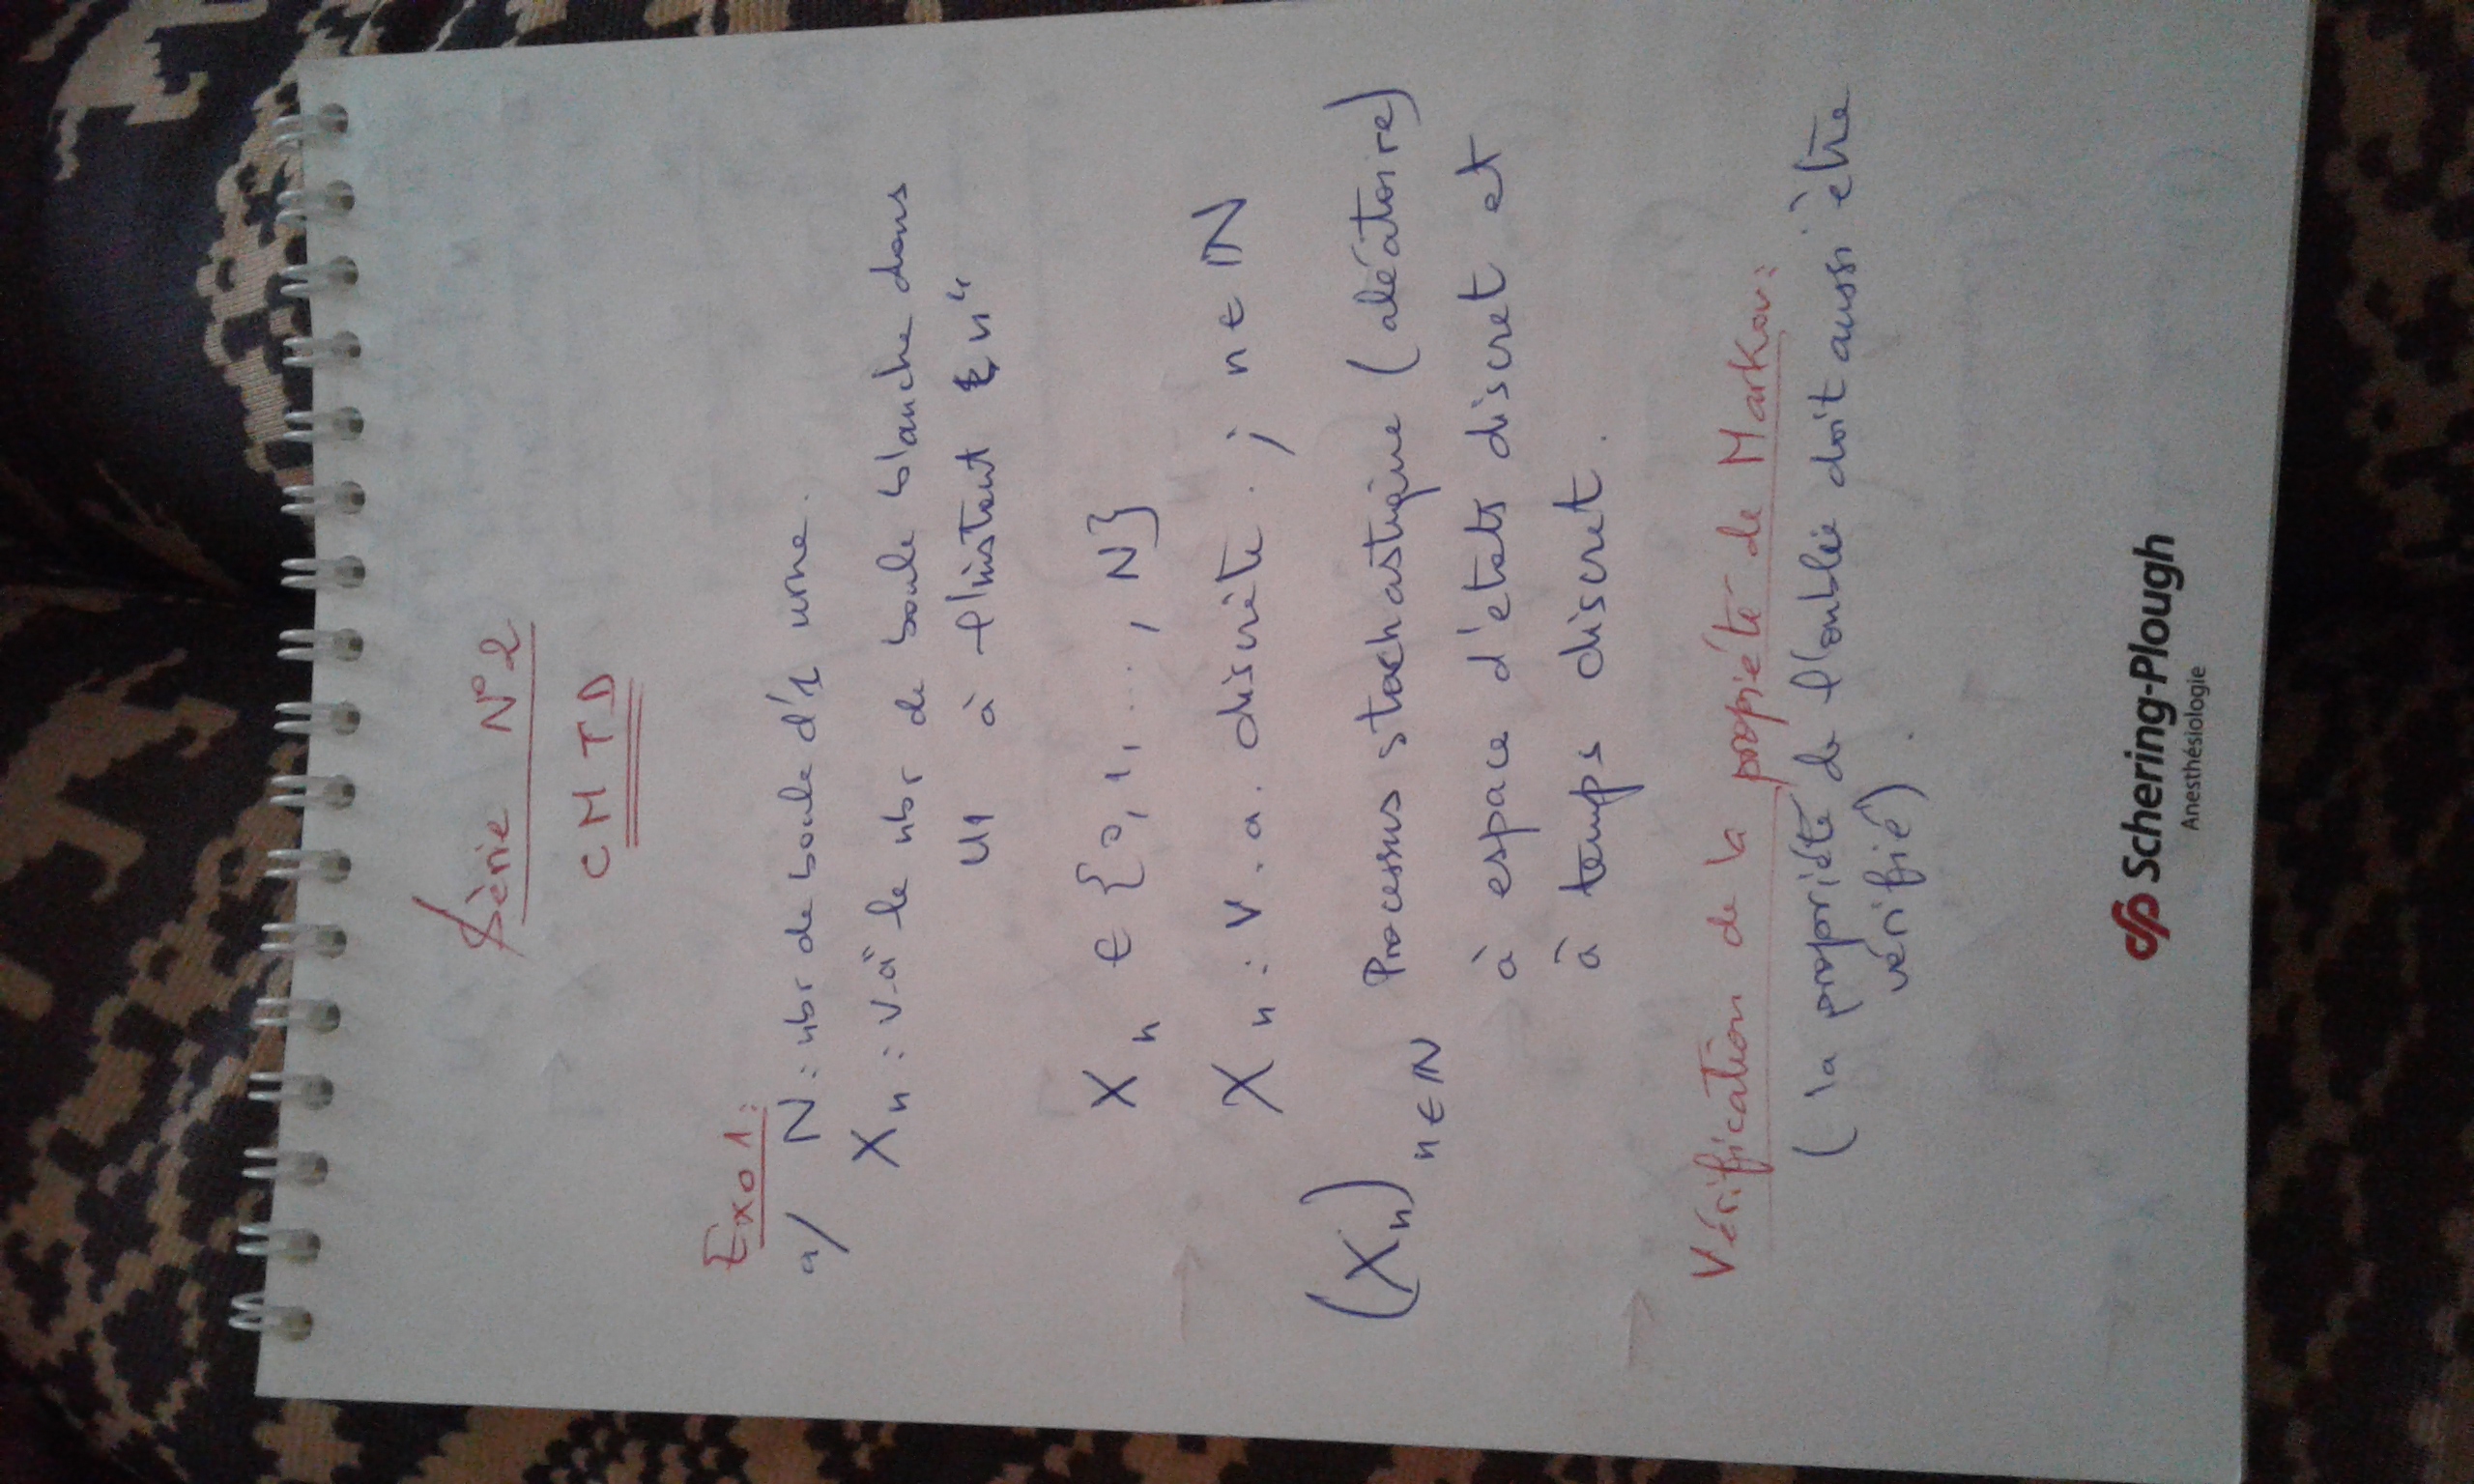 Série N°2
CMTD
Exo 1:
a/ N : nbr de boule d'1 urne.
Xn : v.a " le nbr de boule blanche dans
U1 à l'instant n"
Xn ∈ {0, 1, ..., N}
Xn : v.a. discrète . ; n ∈ ℕ
(Xn) n∈ℕ Processus stochastique (aléatoire)
à espace d'états discret et
à temps discret.
Vérification de la propiété de Markov:
( la propriété de l'oublie doit aussi être
vérifié) .
Schering-Plough
Anesthésiologie